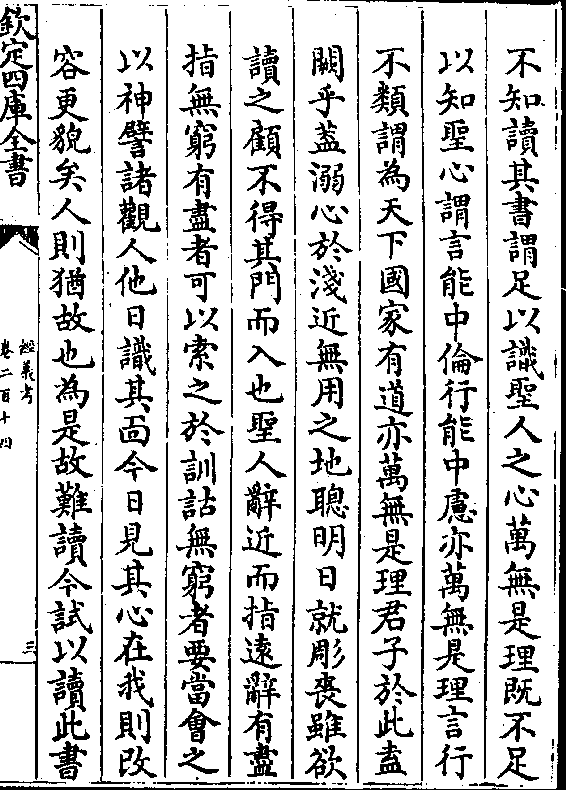 不知讀其書謂足以識聖人之心萬無是理既不足
以知聖心謂言能中倫行能中慮亦萬無是理言行
不類謂為天下國家有道亦萬無是理君子於此盍
闕乎蓋溺心於淺近無用之地聰明日就彫喪雖欲
讀之顧不得其門而入也聖人辭近而指遠辭有盡
指無窮有盡者可以索之於訓詁無窮者要當會之
以神譬諸觀人他日識其面今日見其心在我則改
容更貌矣人則猶故也為是故難讀今試以讀此書
欽定四庫全書
經義考
卷二百十四
三